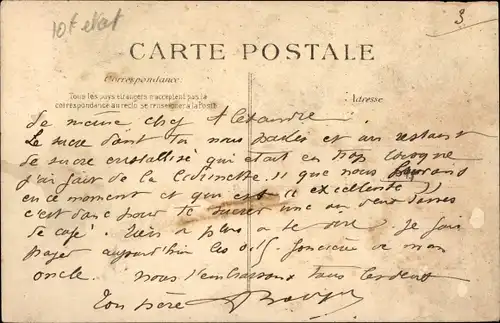 10f etat
3
CARTE POSTALE
Correspondance
Tous les pays étrangers n'acceptent pas la
correspondance au recto se renseigner à la Poste
Adresse
De même cher Alexandre
Le sucre dont tu nous parles et un restant
de sucre cristallisé qui était en trop
J'ai fait de la que nous
en ce moment et qui est excellente
c'est donc pour te sucrer une ou deux tasses
de café. Rien a plus a te dire. Je fais
payer aujourd'hui les de mon
oncle. nous t'embrassons tous les deux
Ton père